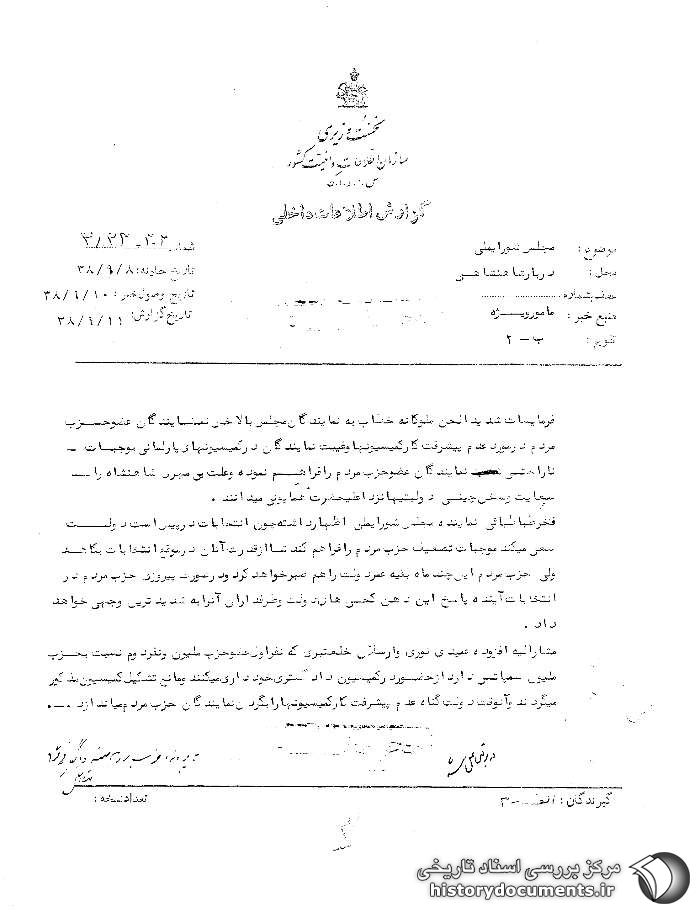 نخست وزیری
سازمان اطلاعات و امنیت کشور
س.ا.و.ا.ک
گزارش اطلاعات داخلی
موضوع : مجلس شورایملی
محل : دربار شاهنشاهی
عطف بشماره
منبع خبر : مامور ویژه
تقویم : ب - ۲
شماره
تاریخ حادثه: ۳۸/۹/۸
تاریخ وصول خبر : ۳۸/۹/۱۰
تاریخ گزارش: ۳۸/۹/۱۱
فرمایشات شدید الحن ملوکانه خطاب به نمایندگان مجلس بالاخره نمایندگان عضو حزب
مردم در مورد عدم پیشرفت کار کمیسیونها وغیبت نمایندگان در کمیسیونهای پارلمانی موجبات
ناراحتی نمایندگان عضو حزب مردم را فراهم نموده وعلت بی مهری شاهنشاه را
سعایت وسخن چینی دولتیها نزد اعلیحضرت همایونی میدانند .
فخر طباطبائی نماینده مجلس شورایملی اظهار داشته چون انتخابات در پیش است دولت
سعی میکند موجبات تضعیف حزب مردم را فراهم کند تا از قدرت آنان در موقع انتخابات بکاهد
ولی حزب مردم این چند ماه بقیه عمر دولت را هم صبر خواهد کرد ودر صورت پیروزی حزب مردم در
انتخابات آینده پاسخ این دهن کجی های دولت وطرفداران آنرا به شدیدترین وجهی خواهد
داد .
مشارالیه افزوده عمیدی نوری وارسلان خلعتبری که نفر اول عضو حزب ملیون ونفر دوم نسبت بحزب
ملیون سمپاتی دارد از حضور در کمیسیون دادگستری خودداری میکنند ومانع تشکیل کمیسیون مذکور
میگردند وآنوقت دولت گناه عدم پیشرفت کار کمیسیونها را بگردن نمایندگان حزب مردم میاندازد .
گیرندگان :
تعداد نسخه :
مرکز بررسی اسناد تاریخی
historydocuments.ir